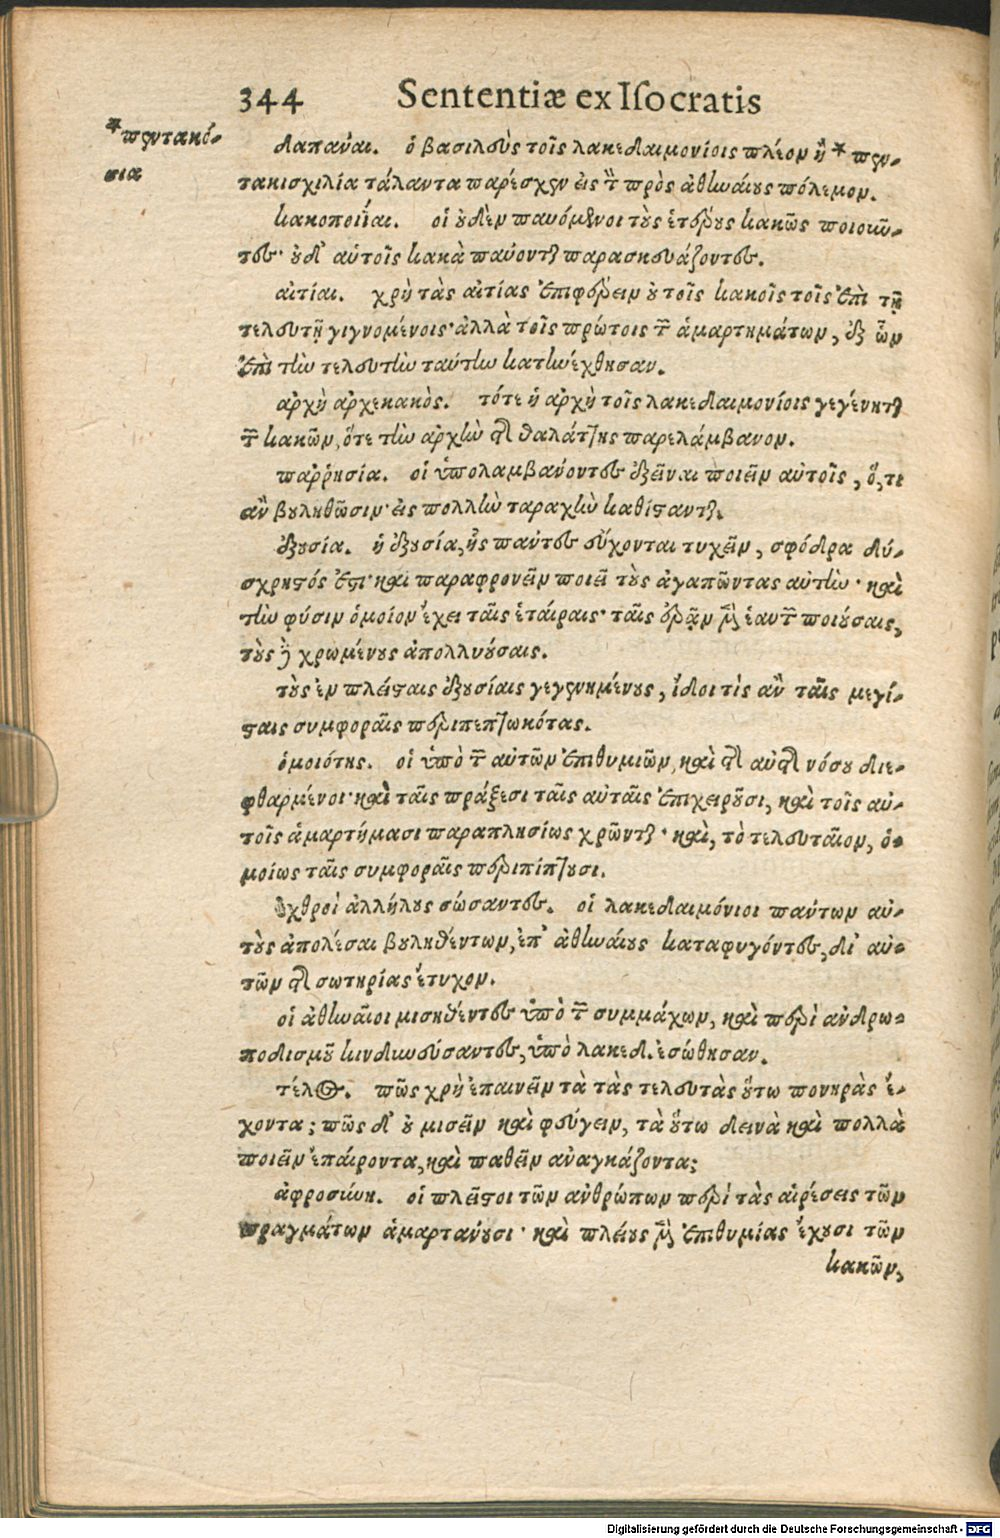 344 Sententiæ ex Iſocratis
*πεντακό-
σια
δαπάναι. ὁ βασιλεὺς τοῖς λακεδαιμονίοις πλέον ἢ * πεν-
τακισχιλία τάλαντα παρέσχεν εἰς τὸν πρὸς ἀθηναίους πόλεμον.
κακοποιΐαι. οἱ οὐδὲν παυόμενοι τοὺς ἑτέρους κακῶς ποιοῦν-
τες· οὐδ' αὑτοῖς κακὰ παύονται παρασκευάζοντες.
αἰτίαι. χρὴ τὰς αἰτίας ἐπιφέρειν οὐ τοῖς κακοῖς τοῖς ἐπὶ τῇ
τελευτῇ γιγνομένοις· ἀλλὰ τοῖς πρώτοις τῶν ἁμαρτημάτων, ἐξ ὧν
ἐπὶ τὴν τελευτὴν ταύτην κατηνέχθησαν.
ἀρχὴ ἀρχέκακος. τότε ἡ ἀρχὴ τοῖς λακεδαιμονίοις γεγένηται
τῶν κακῶν, ὅτε τὴν ἀρχὴν τῆς θαλάττης παρελάμβανον.
παῤῥησία. οἱ ὑπολαμβάνοντες ἐξεῖναι ποιεῖν αὐτοῖς, ὅ,τι
ἂν βουληθῶσιν· εἰς πολλὴν ταραχὴν καθίστανται.
ἐξουσία. ἡ ἐξουσία, ἧς πάντες εὔχονται τυχεῖν, σφόδρα δύ-
σχρηστός ἐστι· καὶ παραφρονεῖν ποιεῖ τοὺς ἀγαπῶντας αὐτὴν· καὶ
τὴν φύσιν ὁμοίον ἔχει ταῖς ἑταίραις· ταῖς ἐρᾷν μὲν ἑαυτῶν ποιούσαις,
τοὺς δὲ χρωμένους ἀπολλυούσαις.
τοὺς ἐν πλείσταις ἐξουσίαις γεγενημένους, ἴδοι τὶς ἂν ταῖς μεγί-
σταις συμφοραῖς περιπεπτωκότας.
ὁμοιότης. οἱ ὑπὸ τῶν αὐτῶν ἐπιθυμιῶν, καὶ τῆς αὐτῆς νόσου διε-
φθαρμένοι· καὶ ταῖς πράξεσι ταῖς αὐταῖς ἐπιχειροῦσι, καὶ τοῖς αὐ-
τοῖς ἁμαρτήμασι παραπλησίως χρῶνται· καὶ, τὸ τελευταῖον, ὁ-
μοίως ταῖς συμφοραῖς περιπίπτουσι.
ἐχθροὶ ἀλλήλους σώσαντες. οἱ λακεδαιμόνιοι πάντων αὐ-
τοὺς ἀπολέσαι βουληθέντων, ἐπ' ἀθηναίους καταφυγόντες, δι' αὐ-
τῶν τῆς σωτηρίας ἔτυχον.
οἱ ἀθηναῖοι μισηθέντες ὑπὸ τῶν συμμάχων, καὶ περὶ ἀνδρω-
ποδισμοῦ κινδυνεύσαντες, ὑπὸ λακεδ. ἐσώθησαν.
τέλος. πῶς χρὴ ἐπαινεῖν τὰ τὰς τελευτὰς οὕτω πονηρὰς ἔ-
χοντα; πῶς δ' οὐ μισεῖν καὶ φεύγειν, τὰ οὕτω δεινὰ καὶ πολλὰ
ποιεῖν ἐπαίροντα, καὶ παθεῖν ἀναγκάζοντα;
ἀφροσύνη. οἱ πλεῖστοι τῶν ἀνθρώπων περὶ τὰς αἱρέσεις τῶν
πραγμάτων ἁμαρτάνουσι· καὶ πλείους μὲν ἐπιθυμίας ἔχουσι τῶν
κακῶν,
Digitalisierung gefördert durch die Deutsche Forschungsgemeinschaft - DFG